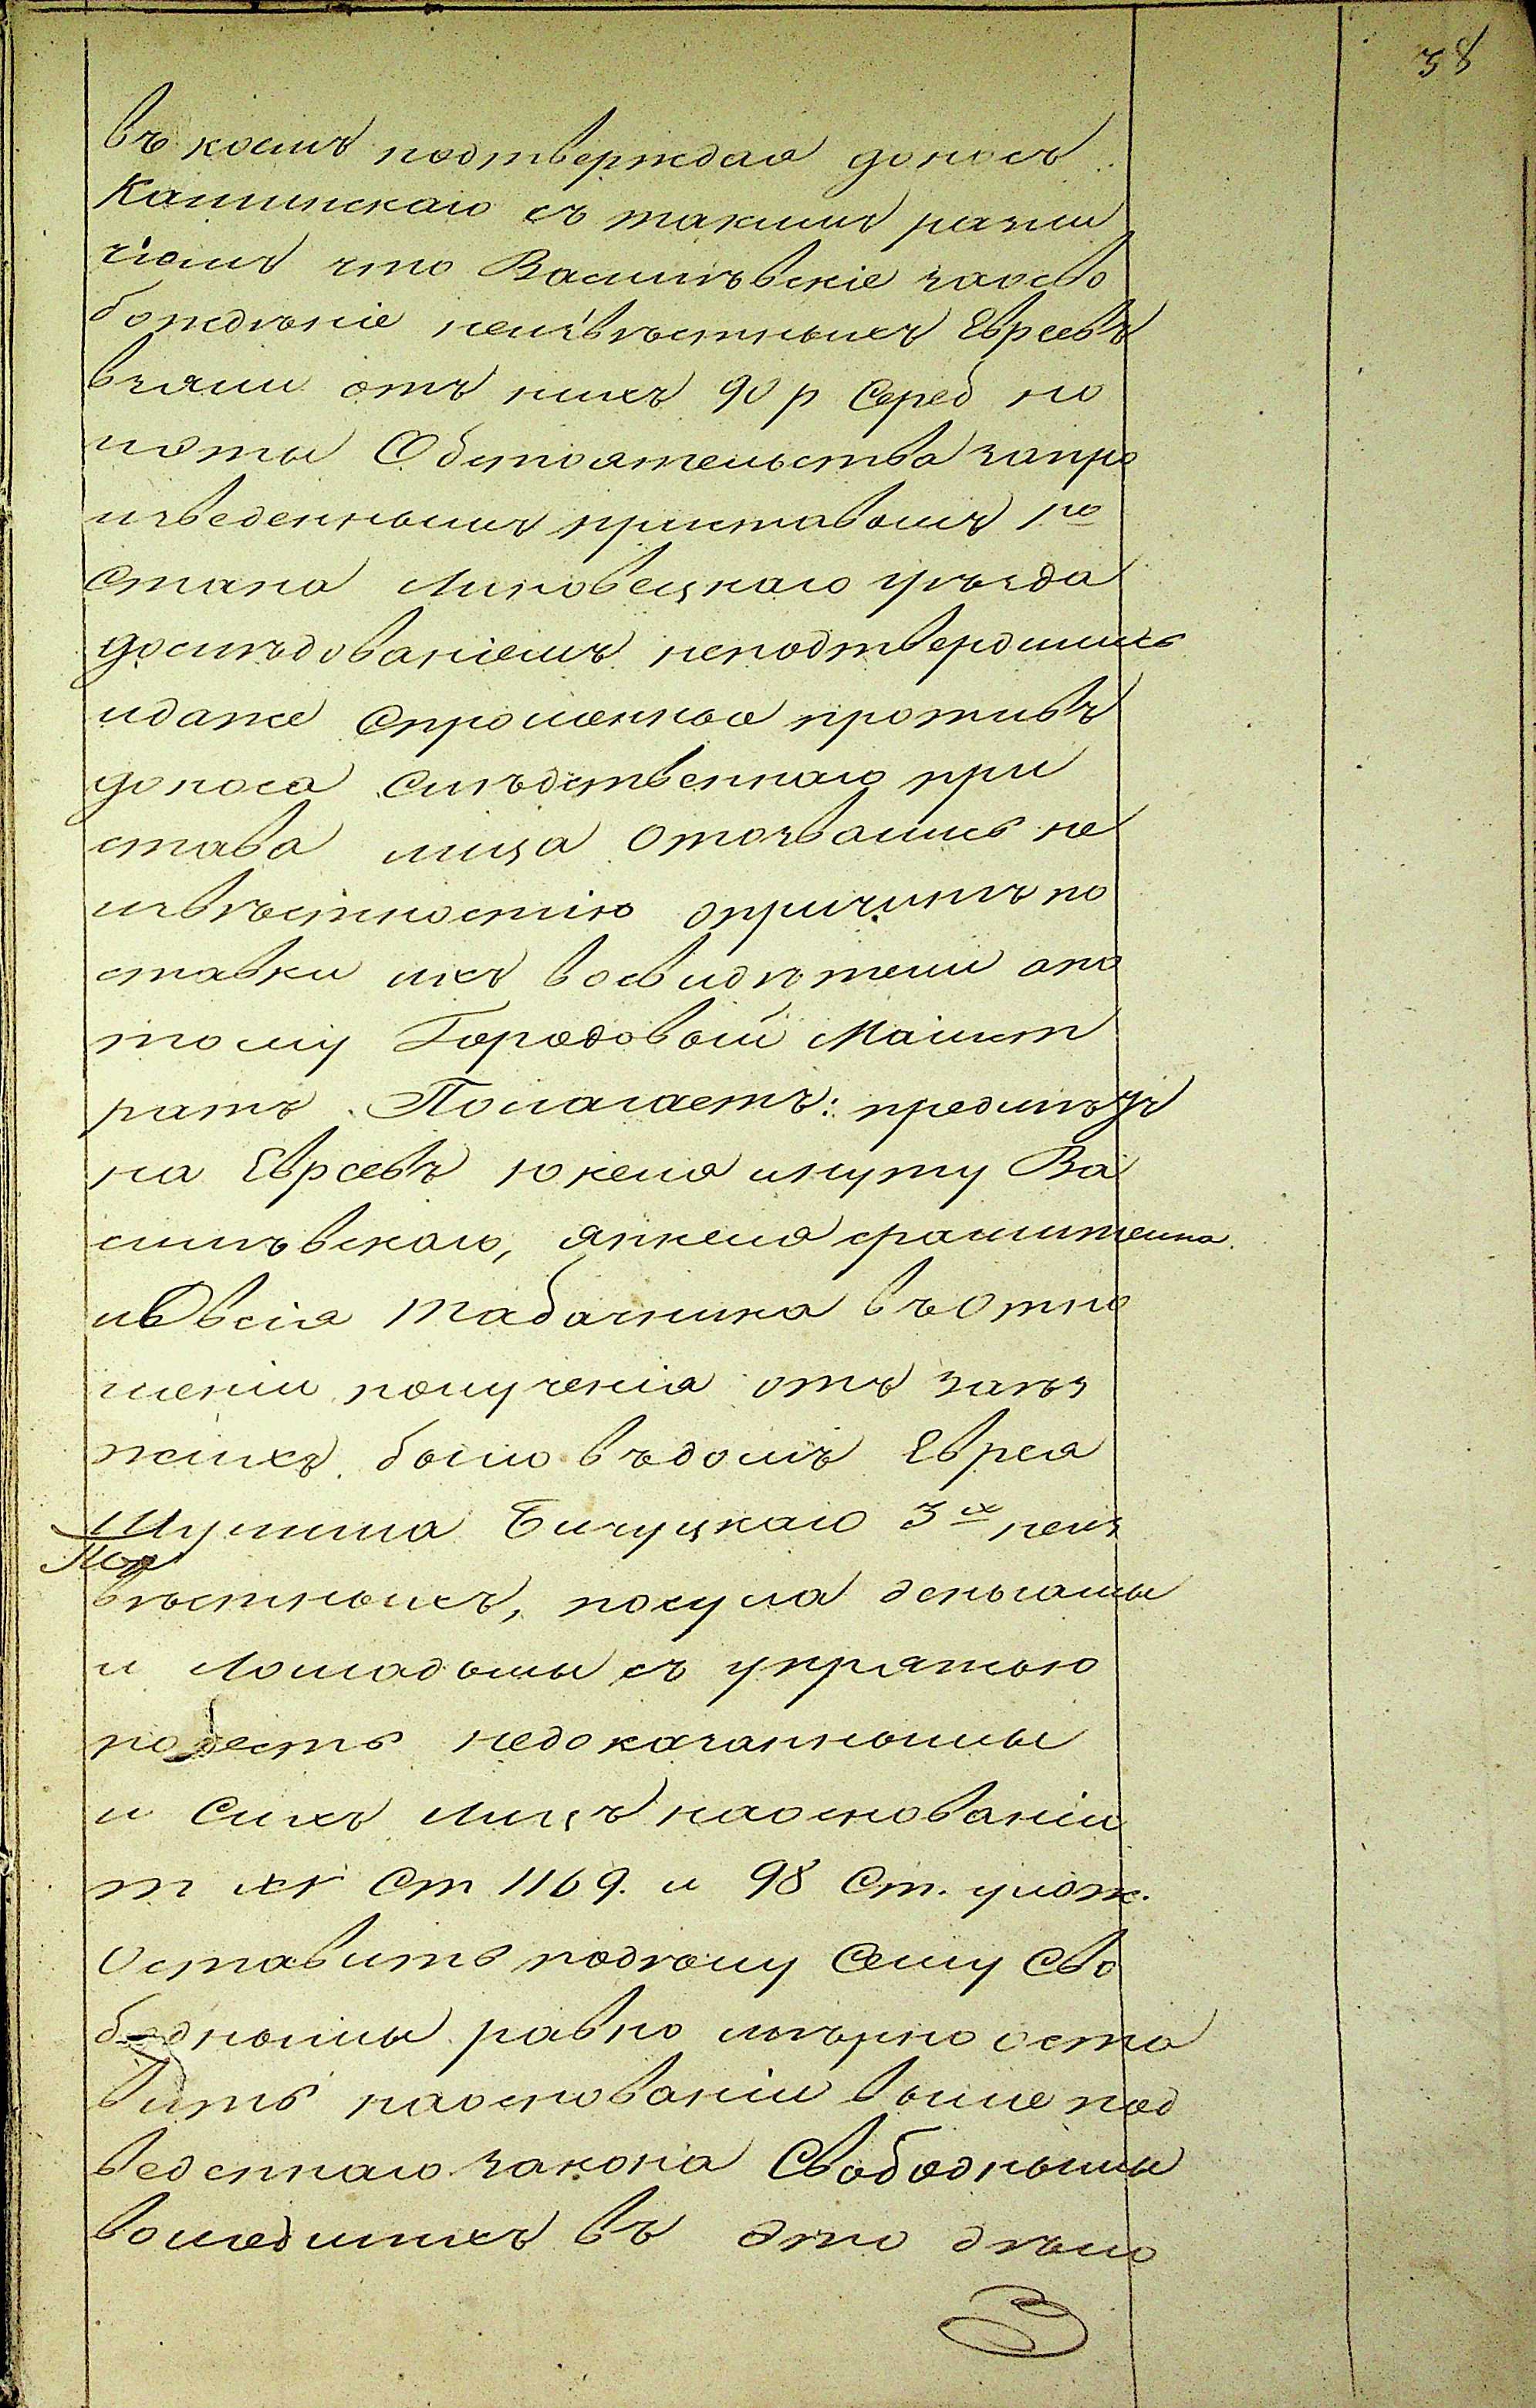 38
въ коемъ подтверждая доносъ
Калинскаго съ такимъ разли
чіемъ что Василѣвскіе заосво
божденіе неизвѣстныхъ Евреевъ
взяли отъ нихъ 90 р Сереб но
иэты Обстоятельства запро
изведеннымъ приставомъ 1го
Стана Липовецкаго уѣзда
дослѣдованіемъ неподтвердились
идаже Спрошенные противъ
доноса Слѣдственнаго при
става лица Отозвались не
извѣстностію опричинѣ по
ставки ихъ восвидѣтели апо
тому Городовый Магист
ратъ Полагаетъ: предметъ
на Евреевъ Юкеля Ва
силѣвскаго, Янкеля
иОвсія Табачника въОтно
шеніи полученія отъ заѣз
жихъ было въдомъ Еврея
Шулима Бичуцкаго 3хъ неиз
вѣстныхъ, посула деньгамы
и Лошадьмы съ упряжью
подесть недоказаннымы
и Сихъ Лицъ наоснованіи
т XV Ст 1169. и 98 Ст. улож.
Оставить подѣлу Сему Сво
боднымы равно мѣрно оста
вить наоснованіи выше под
веденнаго закона Свободнымы
вошедшихъ въ это дѣло